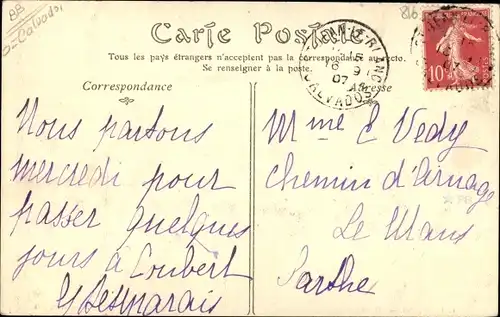 BB
Calvados
Carte Postale
Tous les pays étrangers n'acceptent pas la correspondance au recto.
Se renseigner à la poste.
Correspondance
Adresse
Nous partons
mercredi pour
passer quelques
jours à Loubert
CALVADOS
10
Mme E Vedy
chemin d'Arnage
Le Mans
Sarthe